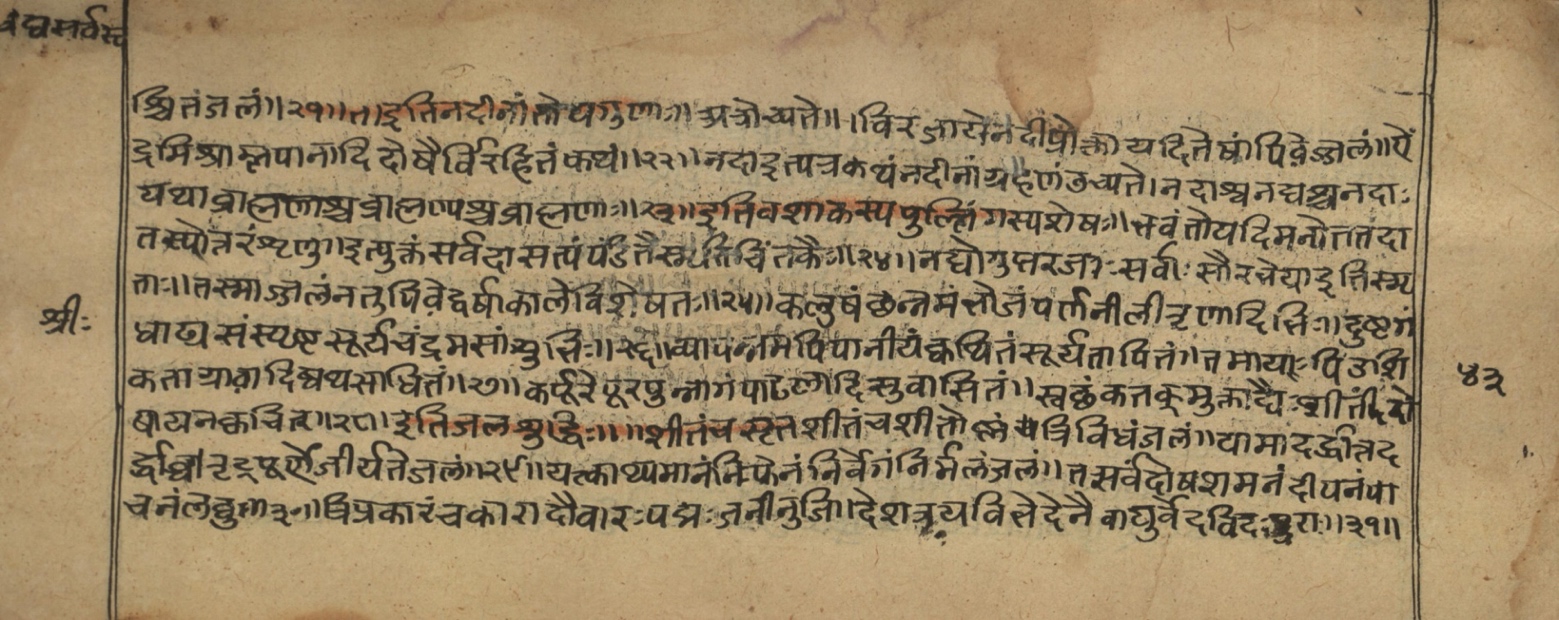 वैद्यसर्वस्व
श्चितंजलं॥२१॥त।इतिनदीनांतोयगुणाः॥अत्रोच्यते॥।विरजायेनदीप्रोक्तायदितेषांपिवेज्जलं॥ऐं
द्रमिश्राम्लपानादिदोषैर्विरहितंकथं॥२२॥नदाइत्पत्रकथंनदीनांग्रहणंउच्यते।नदाश्चनद्यश्चनदाः
यथाब्राह्मणाश्चब्राह्मण्यश्चब्राह्मणाः॥२३॥इतिवशाकस्यपुल्लिंगस्यशेषः॥त्तवंतोयदिमनोततंदा
तस्योत्तरंशृणु॥इत्युक्तंसर्वदासत्पंपंडितैस्मृतिचिंतकैः॥२४॥नद्योगुप्तरजाःसर्वाःसौरत्तेयाइतिस्मृ
ताः॥तस्माज्जलंनतुपिवेद्वर्षाकालेविशेषतः॥२५॥कलुषंछन्नमंत्तोजंपर्त्तनीलीतृणादित्तिः॥दुष्टगं
धाद्यसंस्पृष्टसूर्यचंद्रमसांशुत्तिः॥२६॥व्यापन्नमपिपानीयंक्वथितंसूर्यतापितं॥तमायाःपिंडशि
कताग्रावादिक्वथसाधितं॥२७॥कर्पूरेपूरपुन्नागंपाटलादिसुवासितं॥स्वछंकतकमुक्ताद्यैःशीतंदो
षायनक्वचित्॥२८॥इतिजलशुद्धिः॥॥शीतंचसृतशीतंचशीतोष्णंचत्रिविधंजलं॥यामादर्द्धात्तद
र्द्धाच्चा जीर्यतेजलं॥२९॥यत्काथ्यमानंनिःफेनंनिर्वेगंनिर्मलंजलं॥तसर्वदोषशमनंदीपनंपा
चनंलघु॥३०॥त्रिप्रकारंचकारादौवारःपद्मःजनीनुजि॥देशत्रयवित्तेदेनैवायुर्वेदविदःपुरा॥३१॥
श्रीः
४३